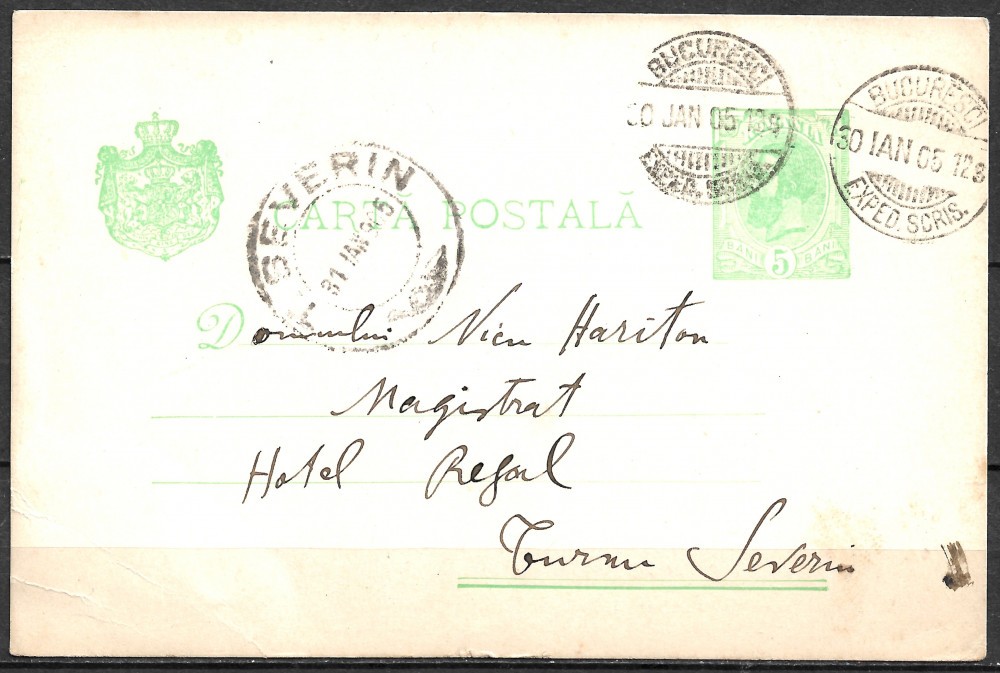 BUCURESCI
30 JAN 05 12
EXPED. SCRIS.
BUCURESCI
30 IAN 05 12
EXPED. SCRIS.
T. SEVERIN
31 IAN 905
CARTĂ POSTALĂ
BANI 5 BANI
Domnului Nicu Hariton
Magistrat
Hotel Regal
Turnu Severin